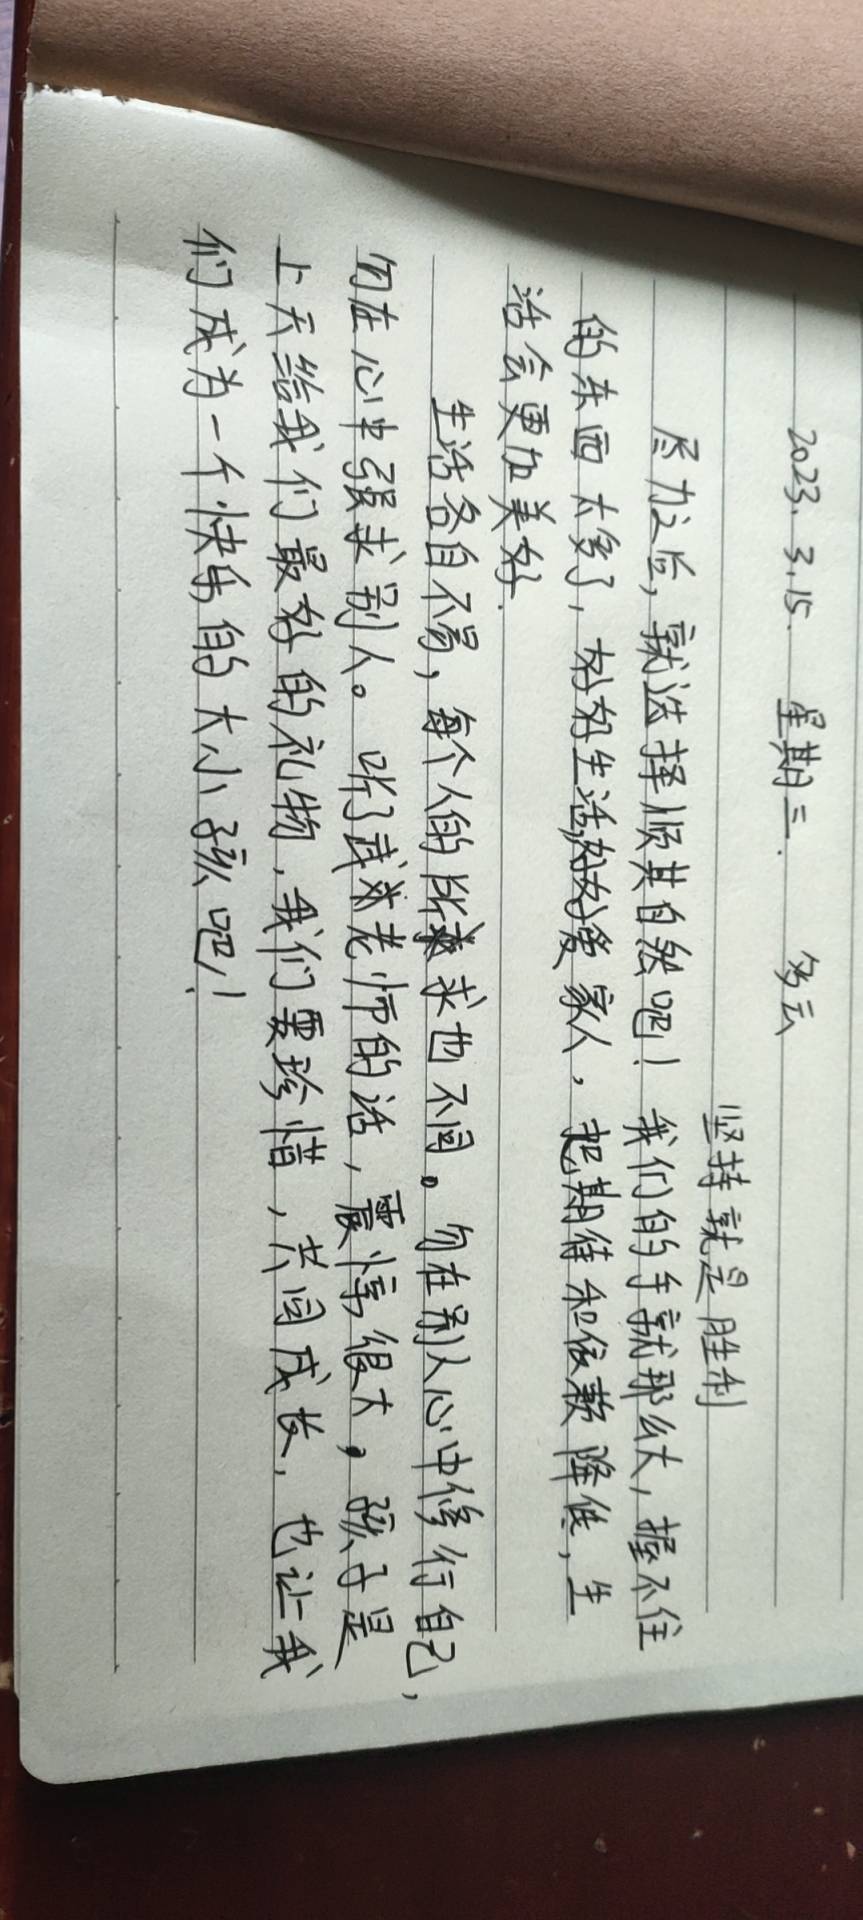 2023.3.15. 星期三. 多云
坚持就是胜利
尽力之后，就选择顺其自然吧！我们的手就那么大，握不住
的东西太多了，好好生活，好好爱家人，把期待和依赖降低，生
活会更加美好.
生活各自不易，每个人的所求也不同。勿在别人心中修行自己，
勿在心中强求别人。听了武老师的话，震惊很大，孩子是
上天给我们最好的礼物，我们要珍惜，共同成长，也让我
们成为一个快乐的大小孩吧！